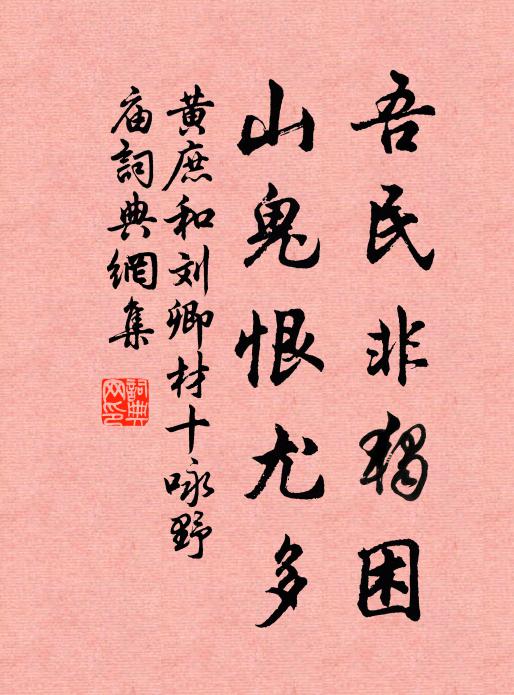 吾民非獨困
山鬼恨尤多
黄庶和刘卿材十咏野
庙詞典網集
詞典
网印